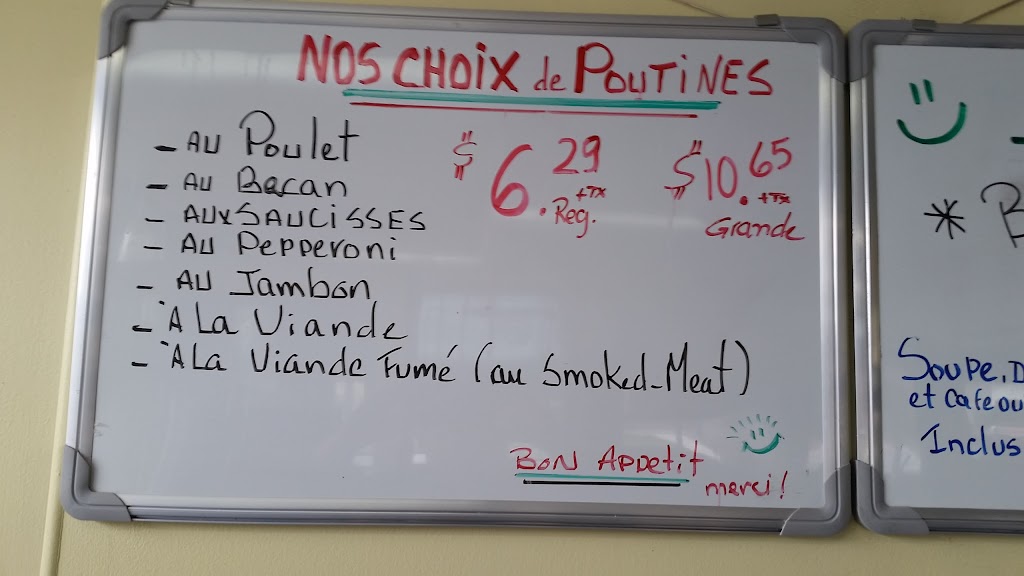 NOS CHOIX de POUTINES
- AU Poulet
- AU Bacan
- AUX SAUCISSES
- AU Pepperoni
- AU Jambon
- À La Viande
- À La Viande Fumé (au Smoked-Meat)
$ 6.29 +TX Reg.
$10.65 +TX Grande
BON APPETIT
merci!
Soupe, D
et Cafe ou
Inclus